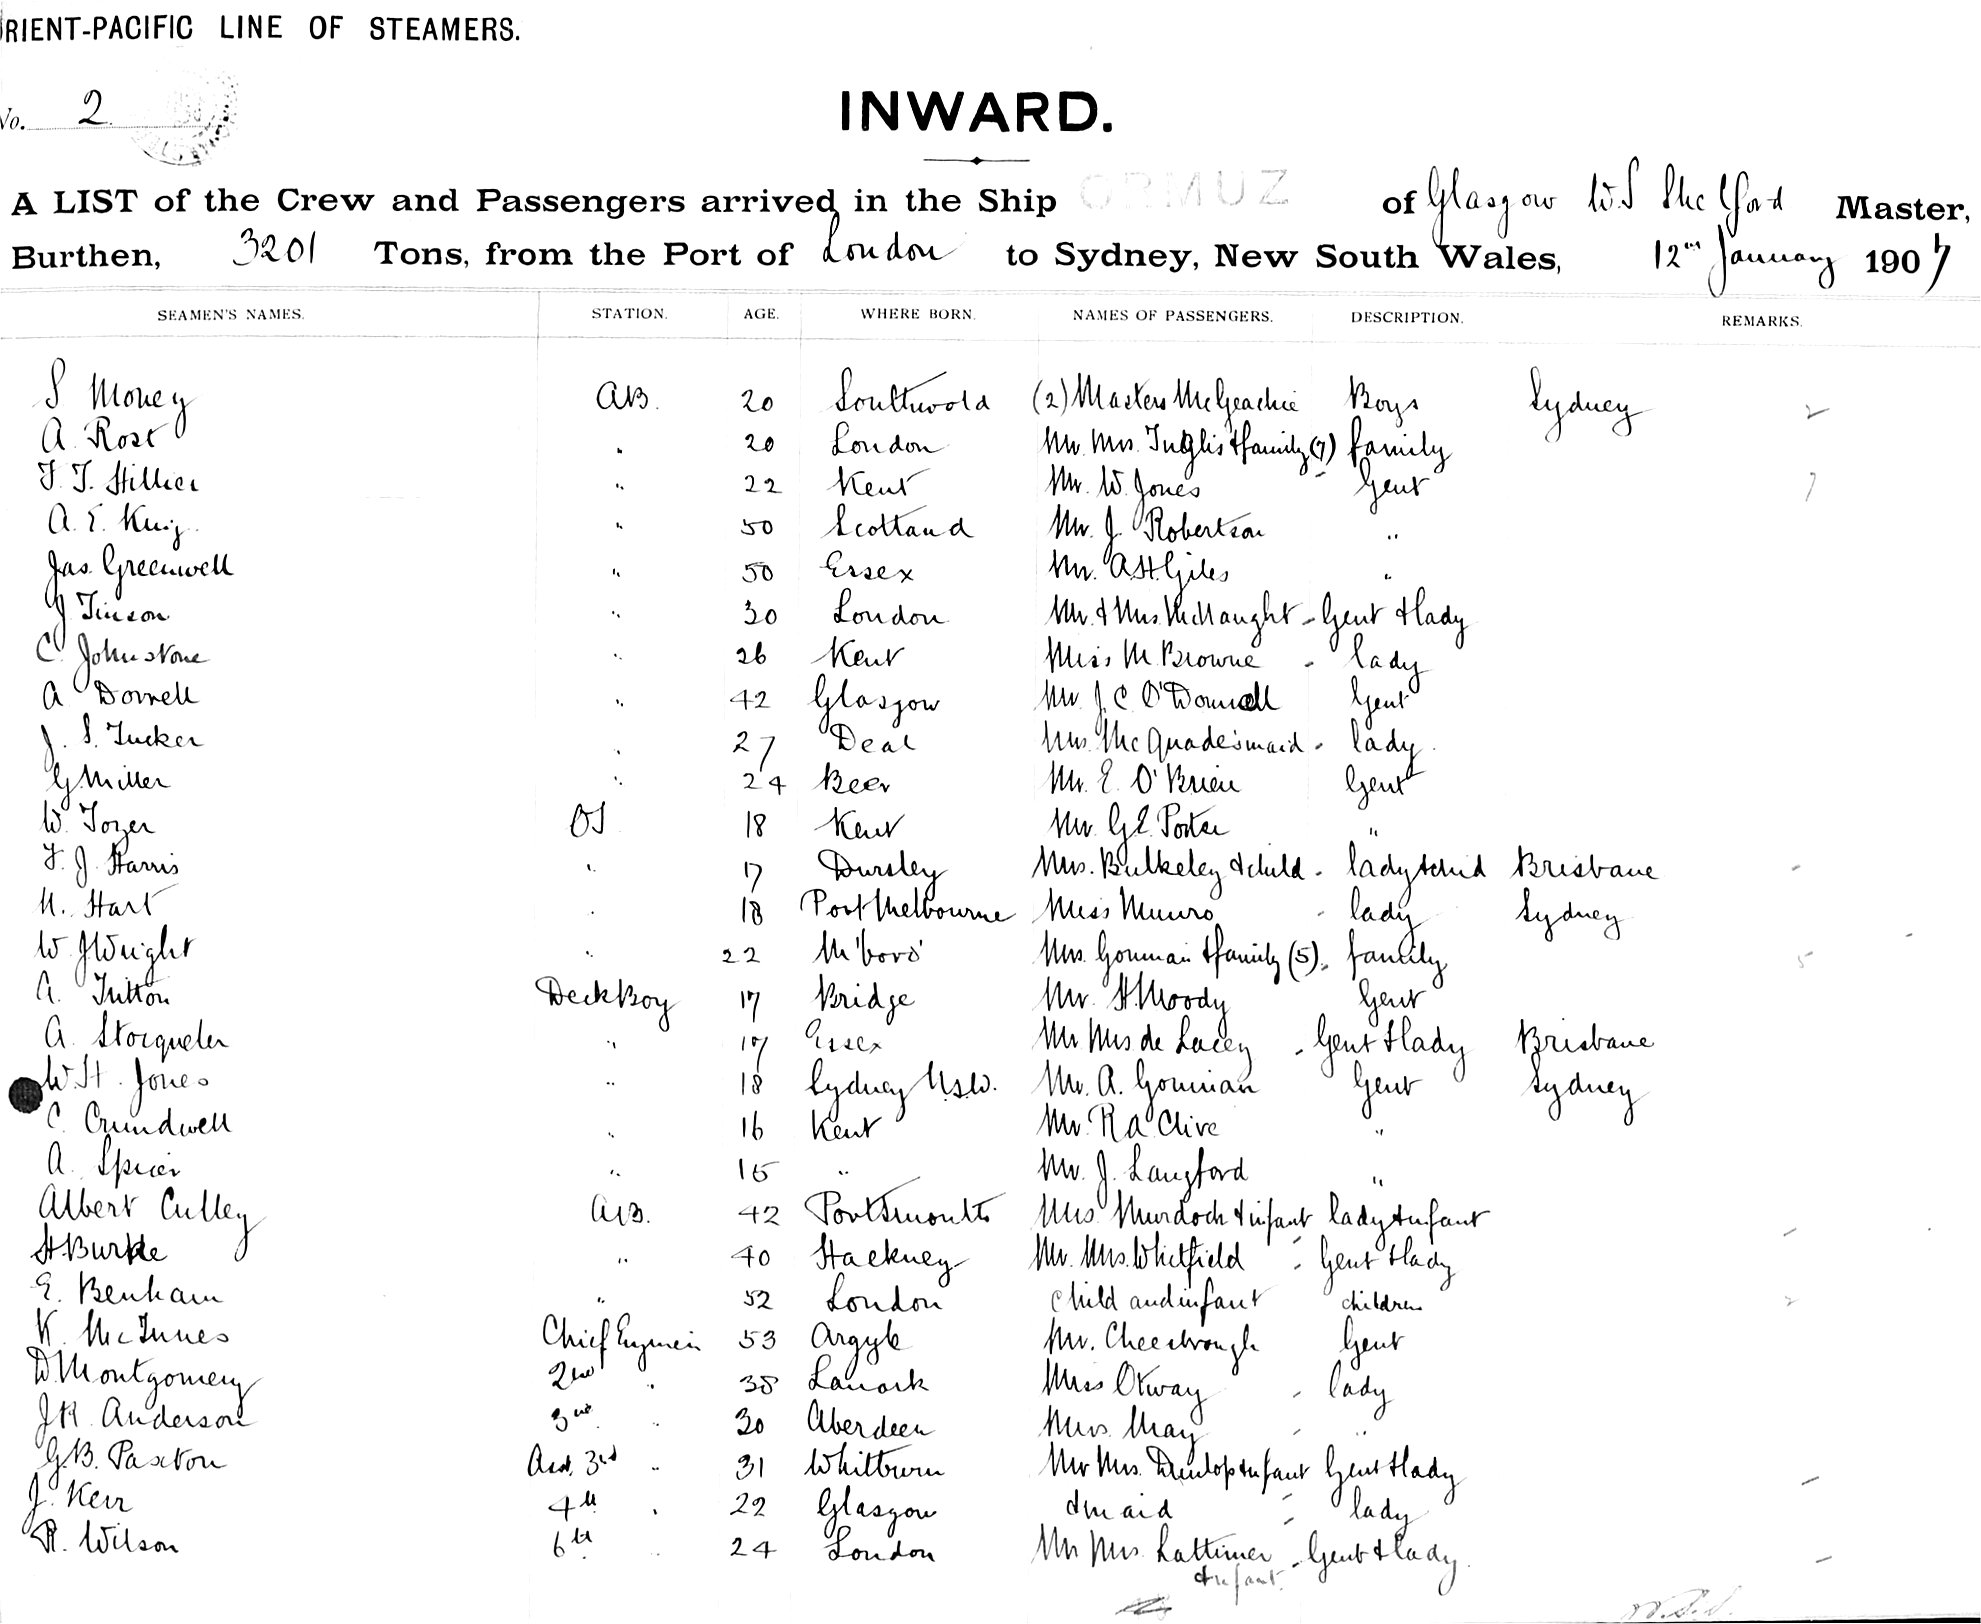 RIENT-PACIFIC LINE OF STEAMERS.
No. 2
INWARD.
A LIST of the Crew and Passengers arrived in the Ship ORMUZ of Glasgow W.S Master,
Burthen, 3201 Tons, from the Port of London to Sydney, New South Wales, 12th January 1907
SEAMEN'S NAMES. STATION. AGE. WHERE BORN. NAMES OF PASSENGERS. DESCRIPTION. REMARKS.
S Money AB. 20 Southwold (2) Masters McGeachie Boys Sydney
A. Rost " 20 London Mr. Mrs. Inglis & family (7) family
F. T. Hillier " 22 Kent Mr. W. Jones Gent
A. E. King " 50 Scotland Mr. J. Robertson "
Jas. Greenwell " 50 Essex Mr. A.H. Giles "
J. Tinson " 30 London Mr. & Mrs. McNaught - Gent & lady
C. Johnstone " 26 Kent Miss M. Browne - lady
A Dorrell " 42 Glasgow Mr. J. C O'Donnell Gent
J. S. Tucker " 27 Deal Mrs. McQuade's maid - lady.
G. Miller " 24 Beer Mr. E. O'Brien Gent
W. Tozer OS 18 Kent Mr. G.E. Porter "
F. J. Harris " 17 Dursley Mrs. Bulkeley & child - lady & child Brisbane
N. Hart " 18 Port Melbourne Miss Munro - lady Sydney
W. J Wright " 22 M'boro' Mrs. Gorman & family (5) - family
A. Tritton Deck Boy 17 Bridge Mr. H. Moody Gent
A. Storqueler " 17 Essex Mr Mrs de Lacey - Gent & lady Brisbane
W. H. Jones " 18 Sydney N.S.W. Mr. A. Gorman Gent Sydney
C. Crundwell " 16 Kent Mr. R A Clive "
A. Spicer " 15 " Mr. J. Langford "
Albert Culley A.B. 42 Portsmouth Mrs Murdoch & infant lady & infant
H Burke " 40 Hackney Mr. Mrs. Whitfield - Gent & lady
E. Benham " 52 London child and infant children
K. McInnes Chief Engineer 53 Argyle Mr. Cheesbrough Gent
D. Montgomery 2nd " 38 Lanark Miss Otway - lady
J R. Anderson 3rd " 30 Aberdeen Mrs. May - "
G B. Paxton Asst. 3rd " 31 Whitburn Mr Mrs. Dunlop & infant Gent & lady
J. Kerr 4th " 22 Glasgow & maid - lady
R. Wilson 6th " 24 London Mr Mrs. Lattimer - Gent & lady.
& infant.